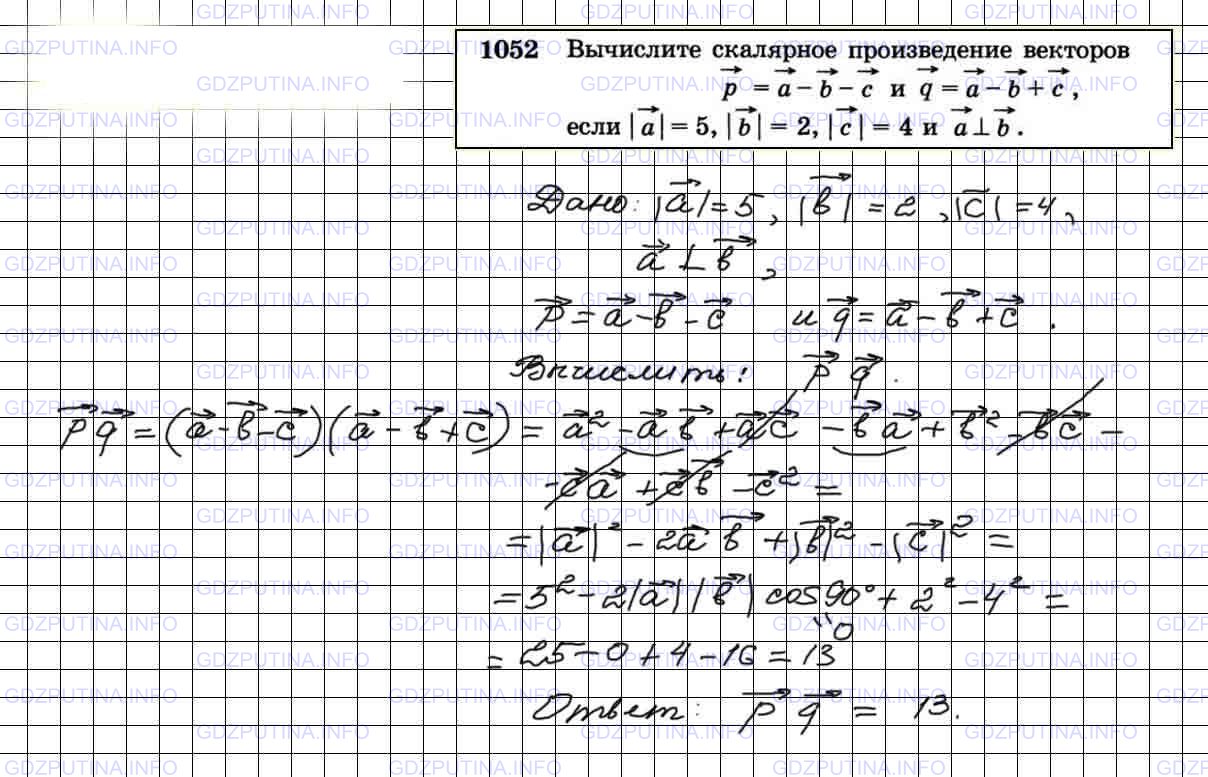 1052 Вычислите скалярное произведение векторов
p⃗ = a⃗ − b⃗ − c⃗ и q⃗ = a⃗ − b⃗ + c⃗,
если |a⃗| = 5, |b⃗| = 2, |c⃗| = 4 и a⃗ ⊥ b⃗.
Дано: |a⃗| = 5, |b⃗| = 2, |c⃗| = 4,
a⃗ ⊥ b⃗,
p⃗ = a⃗ − b⃗ − c⃗ и q⃗ = a⃗ − b⃗ + c⃗.
Вычислить: p⃗ q⃗.
p⃗q⃗ = (a⃗ − b⃗ − c⃗)(a⃗ − b⃗ + c⃗) = a⃗² − a⃗ b⃗ + a⃗c⃗ − b⃗ a⃗ + b⃗² − b⃗c⃗ −
− c⃗a⃗ + c⃗b⃗ − c⃗² =
= |a⃗|² − 2a⃗ b⃗ + |b⃗|² − |c⃗|² =
= 5² − 2|a⃗| |b⃗| cos 90° + 2² − 4² =
"0
= 25 − 0 + 4 − 16 = 13
Ответ: p⃗ q⃗ = 13.
GDZPUTINA.INFO